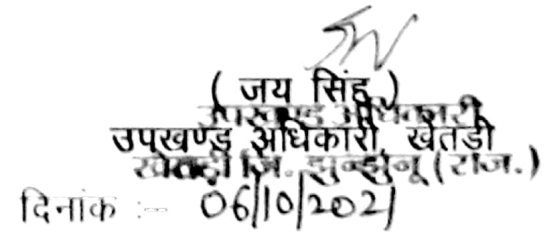 ( जय सिंह )
उपखण्ड अधिकारी
उपखण्ड अधिकारी, खेतडी
खेतड़ी जि. झुन्झुनू (राज.)
दिनांक :- 06/10/2021